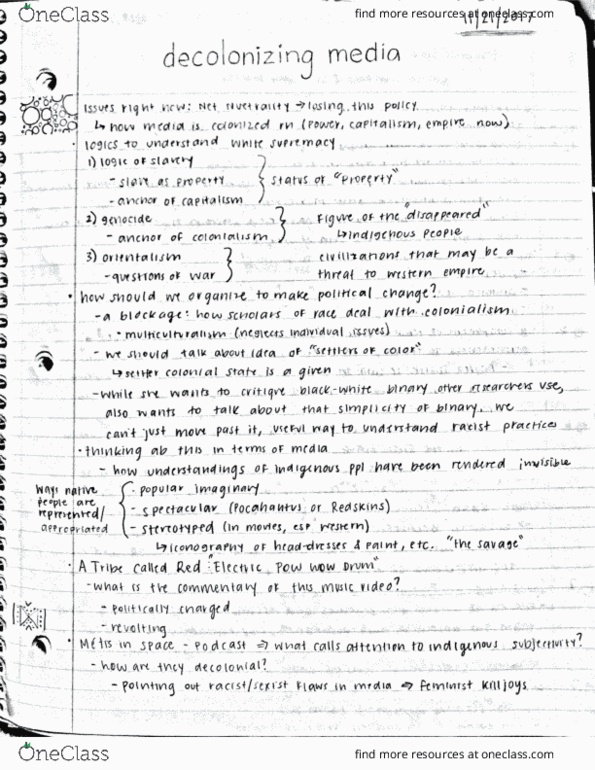 OneClass
find more resources at oneclass.com
11/21/2017
decolonizing media
Issues right now: Net Neutrality → losing this policy
↳ how media is colonized rn (power, capitalism, empire now)
· logics to understand white supremacy
1) logic of slavery
- slave as property } status of "property"
- anchor of capitalism
2) genocide } Figure of the "disappeared"
- anchor of colonialism ↳ indigenous people
3) orientalism } civilizations that may be a
- questions of war threat to western empire
· how should we organize to make political change?
- a blockage: how scholars of race deal with colonialism
· multiculturalism (neglects individual issues)
- we should talk about idea of "settlers of color"
↳ settler colonial state is a given
- while she wants to critique black-white binary other researchers use,
also wants to talk about that simplicity of binary. we
can't just move past it, useful way to understand racist practices
· thinking ab this in terms of media
- how understandings of indigenous ppl have been rendered invisible
ways native people are represented/appropriated { · popular imaginary
- spectacular (Pocahantus or Redskins)
- stereotyped (in movies, esp western)
↳ iconography of head-dresses & paint, etc. "the savage"
· A Tribe Called Red "Electric Pow Wow Drum"
- what is the commentary of this music video?
- politically charged
- revolting
· Métis in space - podcast ⇒ what calls attention to indigenous subjectivity?
- how are they decolonial?
- pointing out racist/sexist flaws in media ⇒ feminist killjoys
OneClass
find more resources at oneclass.com